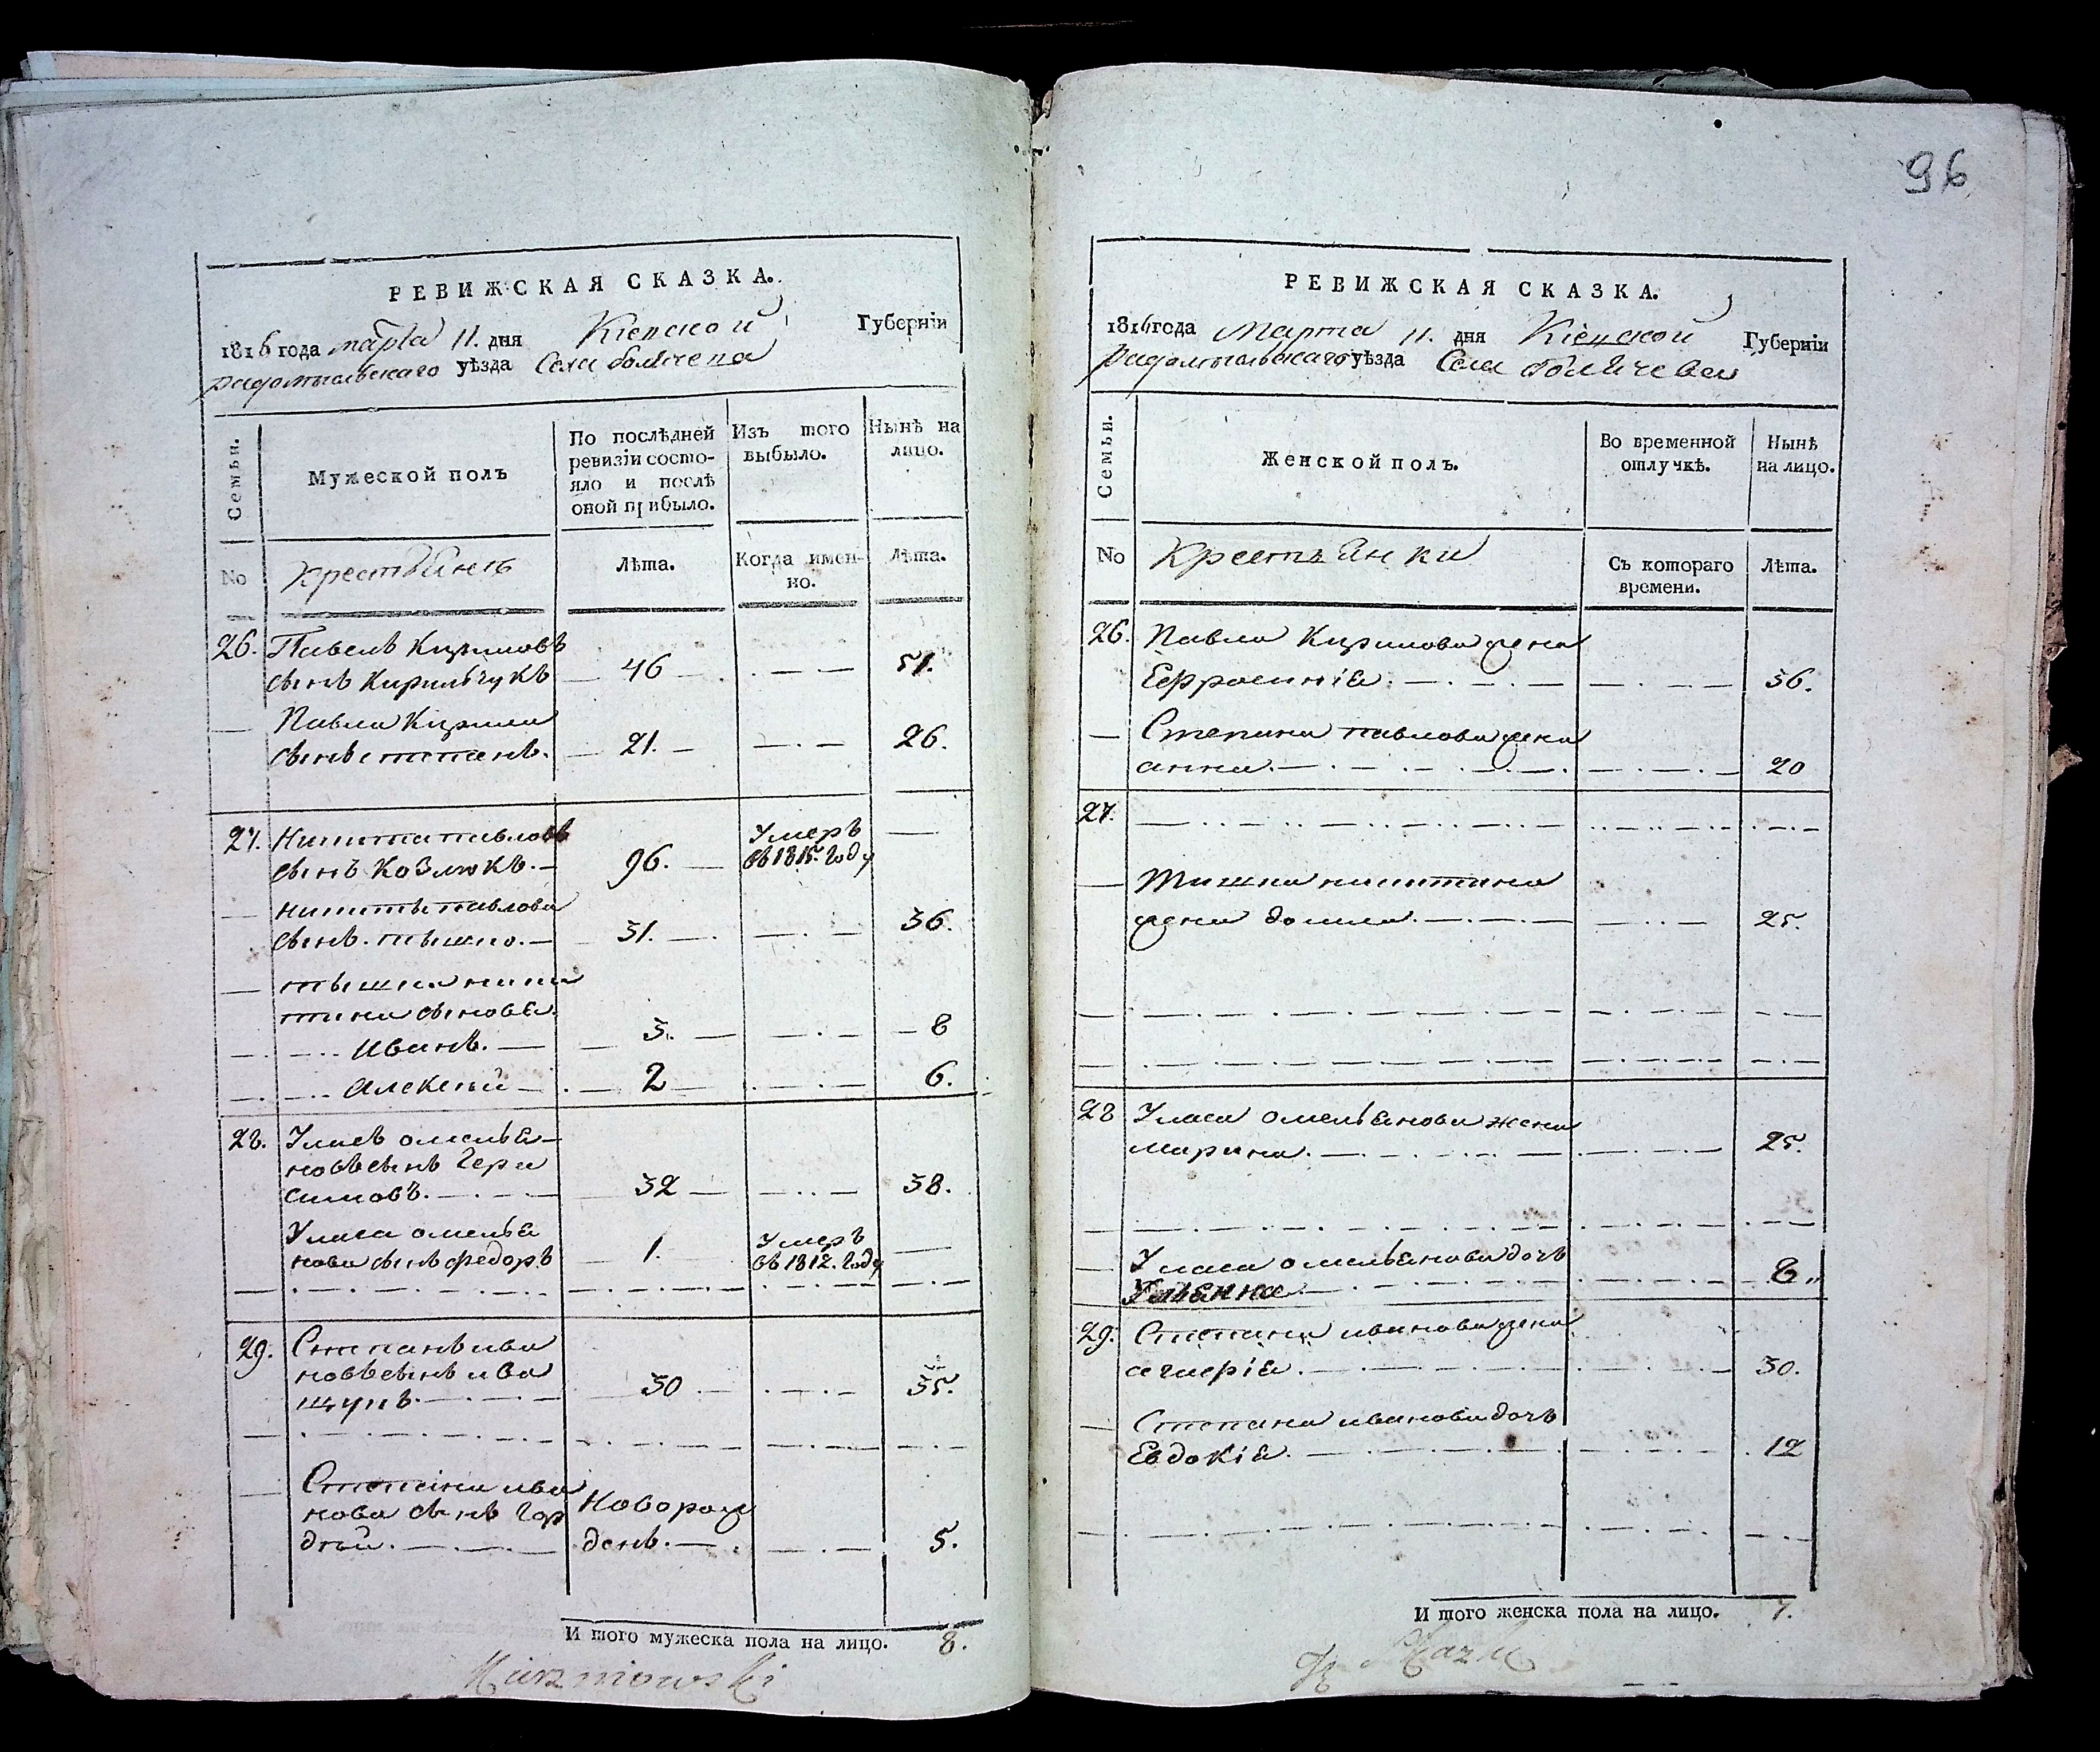 96
РЕВИЖСКАЯ СКАЗКА.
1816 года марта 11. дня Кіевской Губерніи
Радомысльскаго уѣзда Села
Семьи.
Мужеской полъ
По послѣдней
ревизіи состо-
яло и послѣ
оной прибыло.
Изъ того
выбыло.
Нынѣ на
лицо.
No
Крестьянъ
Лѣта.
Когда имен-
но.
Лѣта.
26. Павелъ Кириловъ
сынъ Кирильчукъ 46 51.
Павла Кирила
сынъ степанъ. 21. 26.
27. Никита павловъ Умеръ
сынъ Козлюкъ. 96. въ 1815. году
никиты павлова
сынъ. тышко. 31. 36.
тышка ники
тина сыновья.
Иванъ. 3. 8
Алексѣй 2 6.
28. Уласъ омелья-
новъ сынъ Гера
симовъ. 32 38.
Уласа омелья Умеръ
нова сынъ федоръ 1. въ 1812. году
29. Степанъ ива
новъ сынъ ива
щукъ. 30 35.
Степана ива
нова сынъ горНоворож
дѣй. денъ. 5.
И того мужеска пола на лицо. 8.
РЕВИЖСКАЯ СКАЗКА.
1816 года Марта 11. дня Кіевской Губерніи
Радомысльскаго уѣзда Села
Семьи.
Женской полъ.
Во временной
отлучкѣ.
Нынѣ
на лицо.
No
Крестьянки
Съ котораго
времени.
Лѣта.
26. Павла Кирилова жена
Ефросинія. 56.
Степана павлова жена
анна. 20
27.
Тишка никитина
жена домна. 25.
28 Уласа омельянова жена
марина. 25.
Уласа омельянова дочь
Ульянна 8.
29. Степана иванова жена
гликерія. 30.
Степана иванова дочь
Евдокія. 12
И того женска пола на лицо. 7.